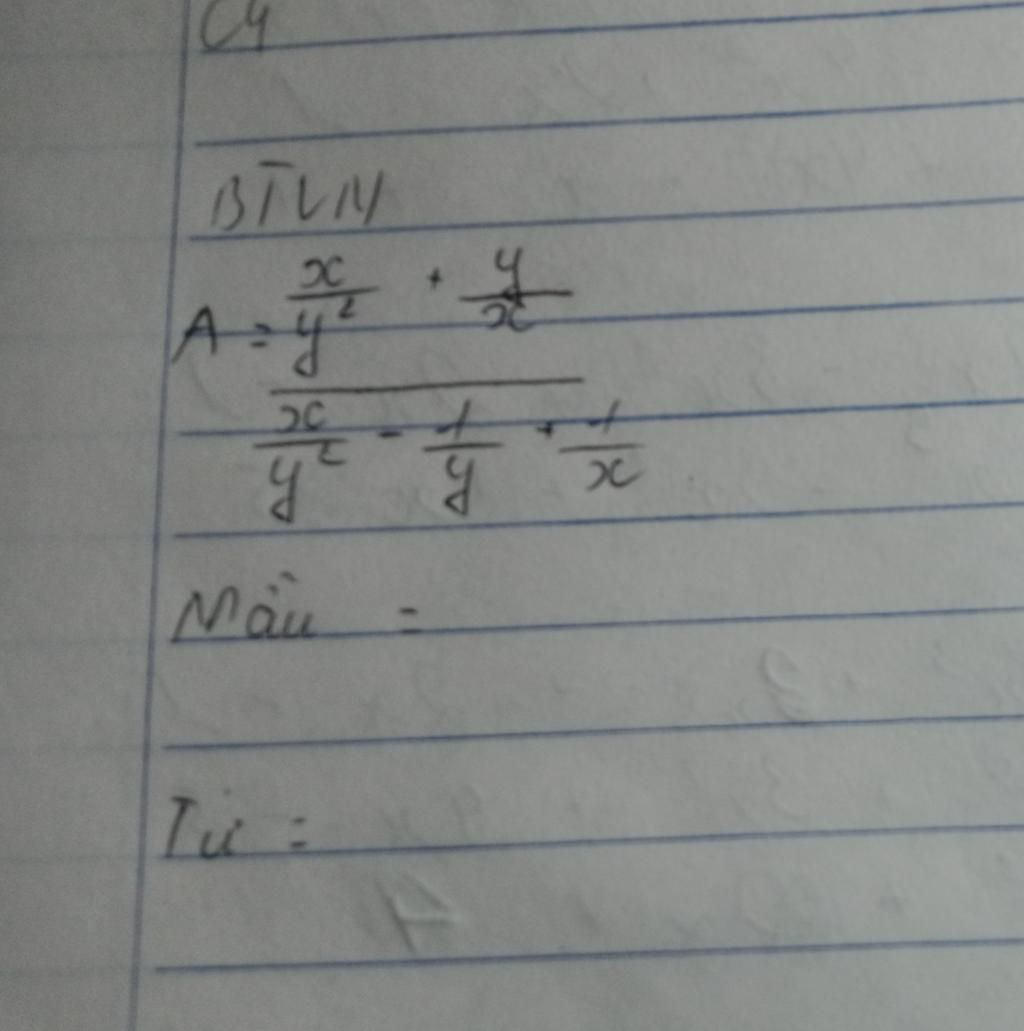 C4
BTVN
A = \frac{\frac{x}{y^2} + \frac{y}{x}}{\frac{x}{y^2} - \frac{1}{y} + \frac{1}{x}}
Mẫu =
Tử =